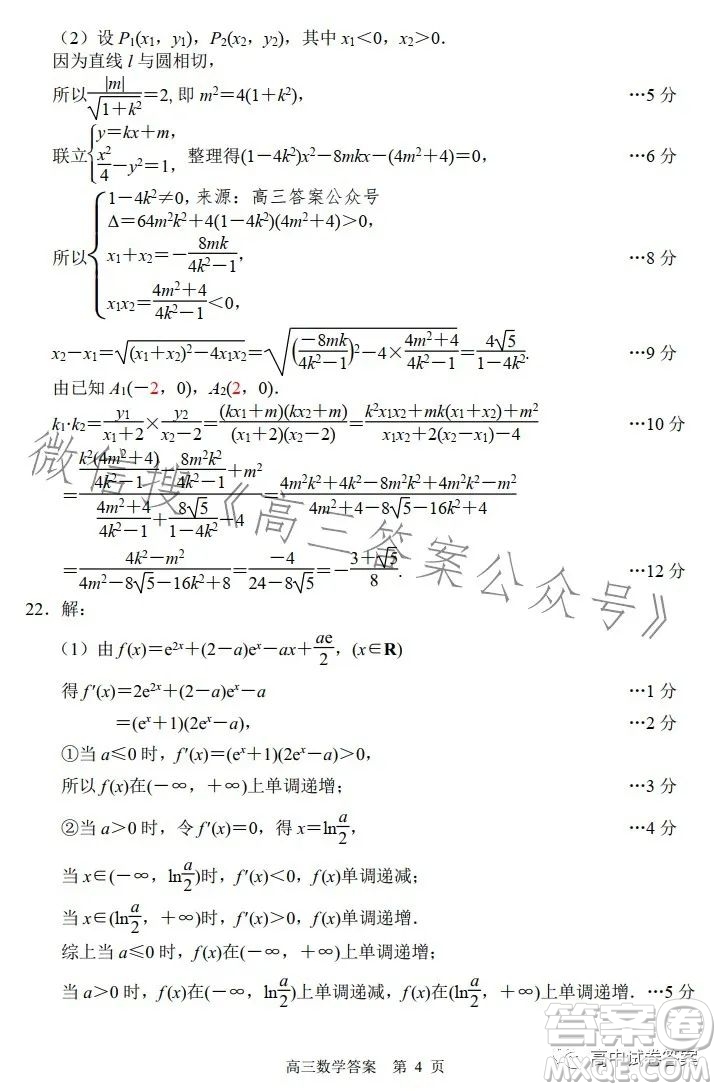 （2）设 P₁(x₁，y₁)，P₂(x₂，y₂)，其中 x₁＜0，x₂＞0．
因为直线 l 与圆相切，
所以 |m|/√(1＋k²)＝2, 即 m²＝4(1＋k²)， …5 分
联立{y＝kx＋m， x²/4－y²＝1， 整理得(1－4k²)x²－8mkx－(4m²＋4)＝0， …6 分
所以{1－4k²≠0, 来源：高三答案公众号
Δ＝64m²k²＋4(1－4k²)(4m²＋4)＞0,
x₁＋x₂＝－8mk/(4k²－1)， …8 分
x₁x₂＝(4m²＋4)/(4k²－1)＜0,
x₂－x₁＝√((x₁＋x₂)²－4x₁x₂)＝√((－8mk/(4k²－1))²－4×(4m²＋4)/(4k²－1))＝4√5/(1－4k²). …9 分
由已知 A₁(－2，0)，A₂(2，0)．
k₁·k₂＝y₁/(x₁＋2)×y₂/(x₂－2)＝(kx₁＋m)(kx₂＋m)/((x₁＋2)(x₂－2))＝(k²x₁x₂＋mk(x₁＋x₂)＋m²)/(x₁x₂＋2(x₂－x₁)－4) …10 分
＝(k²(4m²＋4)/(4k²－1)－8m²k²/(4k²－1)＋m²)/((4m²＋4)/(4k²－1)＋8√5/(1－4k²)－4)＝(4m²k²＋4k²－8m²k²＋4m²k²－m²)/(4m²＋4－8√5－16k²＋4)
＝(4k²－m²)/(4m²－8√5－16k²＋8)＝－4/(24－8√5)＝－(3＋√5)/8. …12 分
22．解：
（1）由 f(x)＝e²ˣ＋(2－a)eˣ－ax＋ae/2，(x∈R)
得 f′(x)＝2e²ˣ＋(2－a)eˣ－a …1 分
＝(eˣ＋1)(2eˣ－a)， …2 分
①当 a≤0 时，f′(x)＝(eˣ＋1)(2eˣ－a)＞0，
所以 f(x)在(－∞，＋∞)上单调递增； …3 分
②当 a＞0 时，令 f′(x)＝0，得 x＝ln a/2， …4 分
当 x∈(－∞，ln a/2)时，f′(x)＜0，f(x)单调递减；
当 x∈(ln a/2，＋∞)时，f′(x)＞0，f(x)单调递增．
综上当 a≤0 时，f(x)在(－∞，＋∞)上单调递增；
当 a＞0 时，f(x)在(－∞，ln a/2)上单调递减，f(x)在(ln a/2，＋∞)上单调递增．…5 分
高三数学答案 第 4 页
微信搜《高三答案公众号》
高中试卷答案
答案圈
MXQE.COM